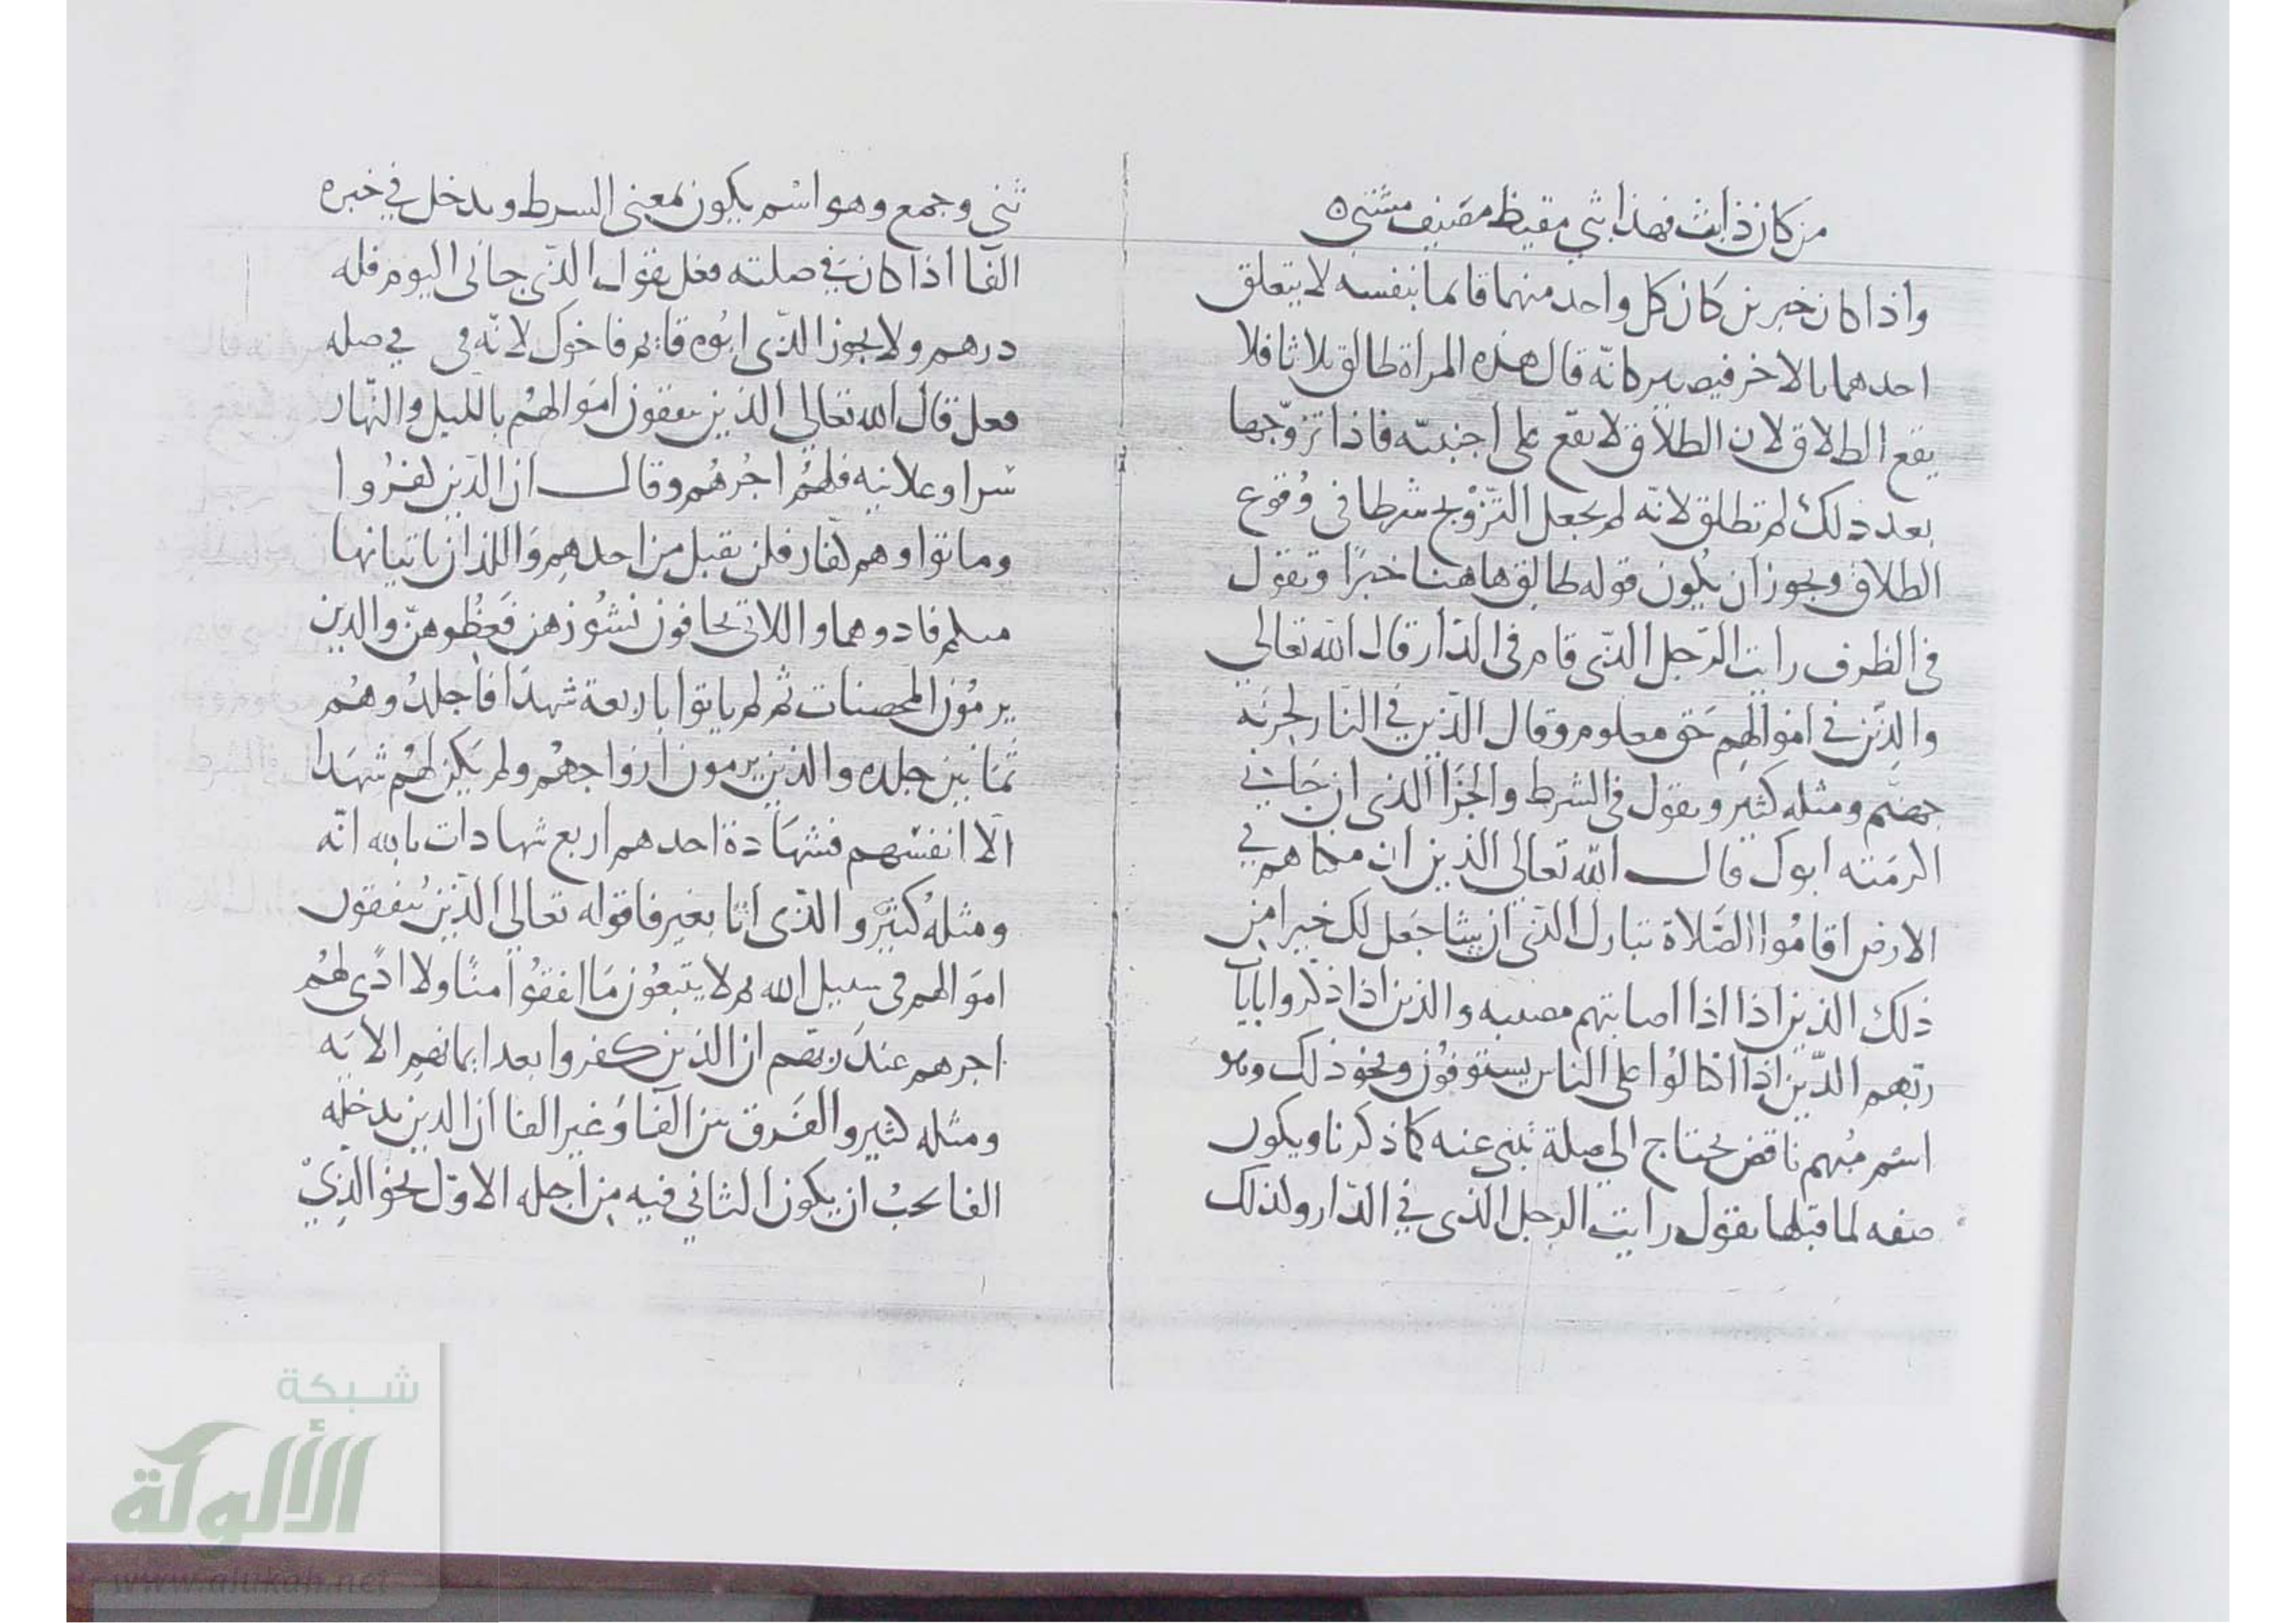 من كان ذا بت فهذا بتي مقيظ مصيف مشتي ه
واذا كان خبرين كان كل واحد منهما قائما بنفسه لا يتعلق
احدهما بالاخر فيصير كانه قال هذه المراة طالق ثلاثا فلا
يقع الطلاق لان الطلاق لا يقع على اجنبيّه فاذا تزوّجها
بعد ذلك لم تطلق لانّه لم يجعل التّزوّيج شرطا في وُقوع
الطلاق ويجوز ان يكون قوله طالق هاهنا خبرًا وتقول
في الظرف رايت الرّجل الذّى قام في الدّار قال الله تعالى
والذّين في اموالهم حَق معلوم وقال الذّين في النّار لخزنَه
جهنّم ومثله كثير ويقول في الشرط والجَزا الذى ان جَاني
اكرمَته ابوك قال الله تعالى الذين ان مكناهم في
الارض اقامُوا الصّلاة تبارك الذّى ان يشا جَعل لك خيرا من
ذلك الذين اذا اذا اصابتهم مصيبه والذين اذا ذكّروا بايات
ربّهم الذّين اذا اكتالوُا على الناس يستوفوُن ونحو ذلك وهو
اسْم مُبهم ناقض يحتاج الى صلة تبنى عنه كما ذكرنا ويكون
صفه لما قبلها يقول رايت الرجل الذى في الدّار ولذلك
ثني وجمع وهو اسْم يكون بمعنى الشرط ويدخل في خبره
الفا اذا كان في صلته فعل يقول الذّى جاني اليوم فله
درهم ولا يجوز الذّى ابُوه قايم فاخوك لانّه في في صله
فعل قال الله تعالى الذين ينفقون اموالهُم بالليل والنّهار
سرا وعلانيه فلهُم اجُرهُم وقال ان الذّين كفرُوا
وماتوا وهم كفّار فلن يقبل من احدهم واللذان ياتيانها
منكم فاذوهما واللاتى تخافون نشُوزهن فَعِظُوهنّ والذين
يرموُن المحصنات ثم لم ياتوا باربعة شهدَا فاجلدُوهُم
ثمَانين جلده والذين يرمون ازواجهُم ولم يَكن لهُم شهَدا
الّا انفسهم فشهَادة احدهم اربع شهادات بالله انّه
ومثلهُ كثيْر والذّى اتا بغير فا قوله تعالى الذّين يُنفقون
اموَالهم في سبيل الله ثم لا يتبعُون مَا انفقوُا منًا ولا اذًى لهُم
اجرهم عند ربّهم ان الذين كفروا بعد ايمانهم الايَه
ومثله كثير والفَرق بين الفا وَغير الفا ان الذين يدخله
الفا يجبُ ان يكون الثاني فيه من اجله الاوّل نحو الذّىْ
شبكة
الألوكة
www.alukah.net